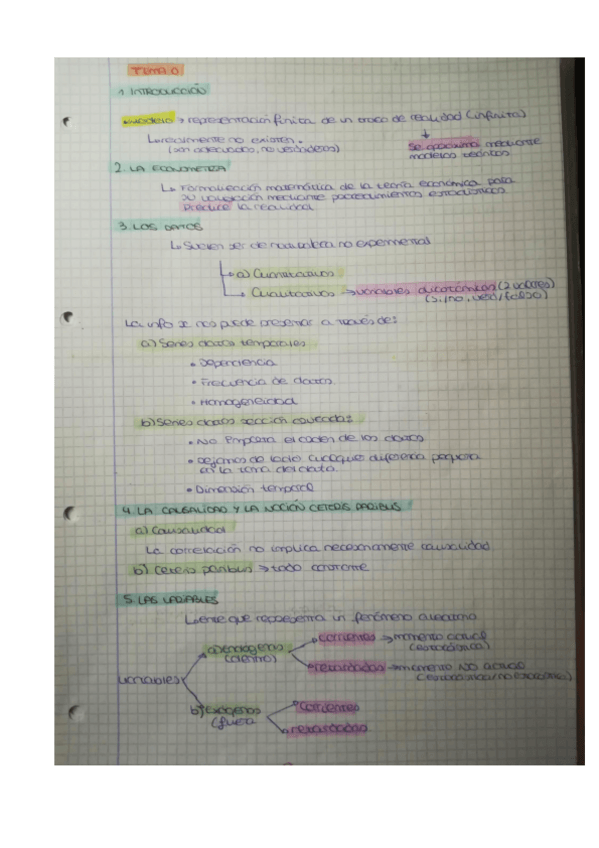 TEMA 0
1. INTRODUCCIÓN
modelo → representación finita de un trozo de realidad (infinita)
↳ realmente no existen.
(son adecuados, no verdaderos)
↓
Se aproxima mediante
modelos teóricos
2. LA ECONOMETRÍA
↳ Formalización matemática de la teoría económica para
su validación mediante procedimientos estadísticos
Predice la realidad
3. LOS DATOS
↳ Suelen ser de naturaleza no experimental
a) Cuantitativos
Cualitativos → variables dicotómicas (2 valores)
(si/no, verd/falso)
La info se nos puede presentar a través de:
a) Series datos temporales
• Dependencia
• Frecuencia de datos.
• Homogeneidad
b) Series datos sección cruzada:
• No importa el orden de los datos
• Dejamos de lado cualquier diferencia pequeña
en la toma del dato.
• Dimensión temporal
4. LA CAUSALIDAD Y LA NOCIÓN CETERIS PARIBUS
a) Causalidad
La correlación no implica necesariamente causalidad
b) Ceteris paribus → todo constante
5. LAS VARIABLES
↳ ente que representa un fenómeno
variables
a) endógenas
(dentro)
corrientes → momento actual
retardadas → momento NO actual
b) Exógenas
(fuera
corrientes
retardadas